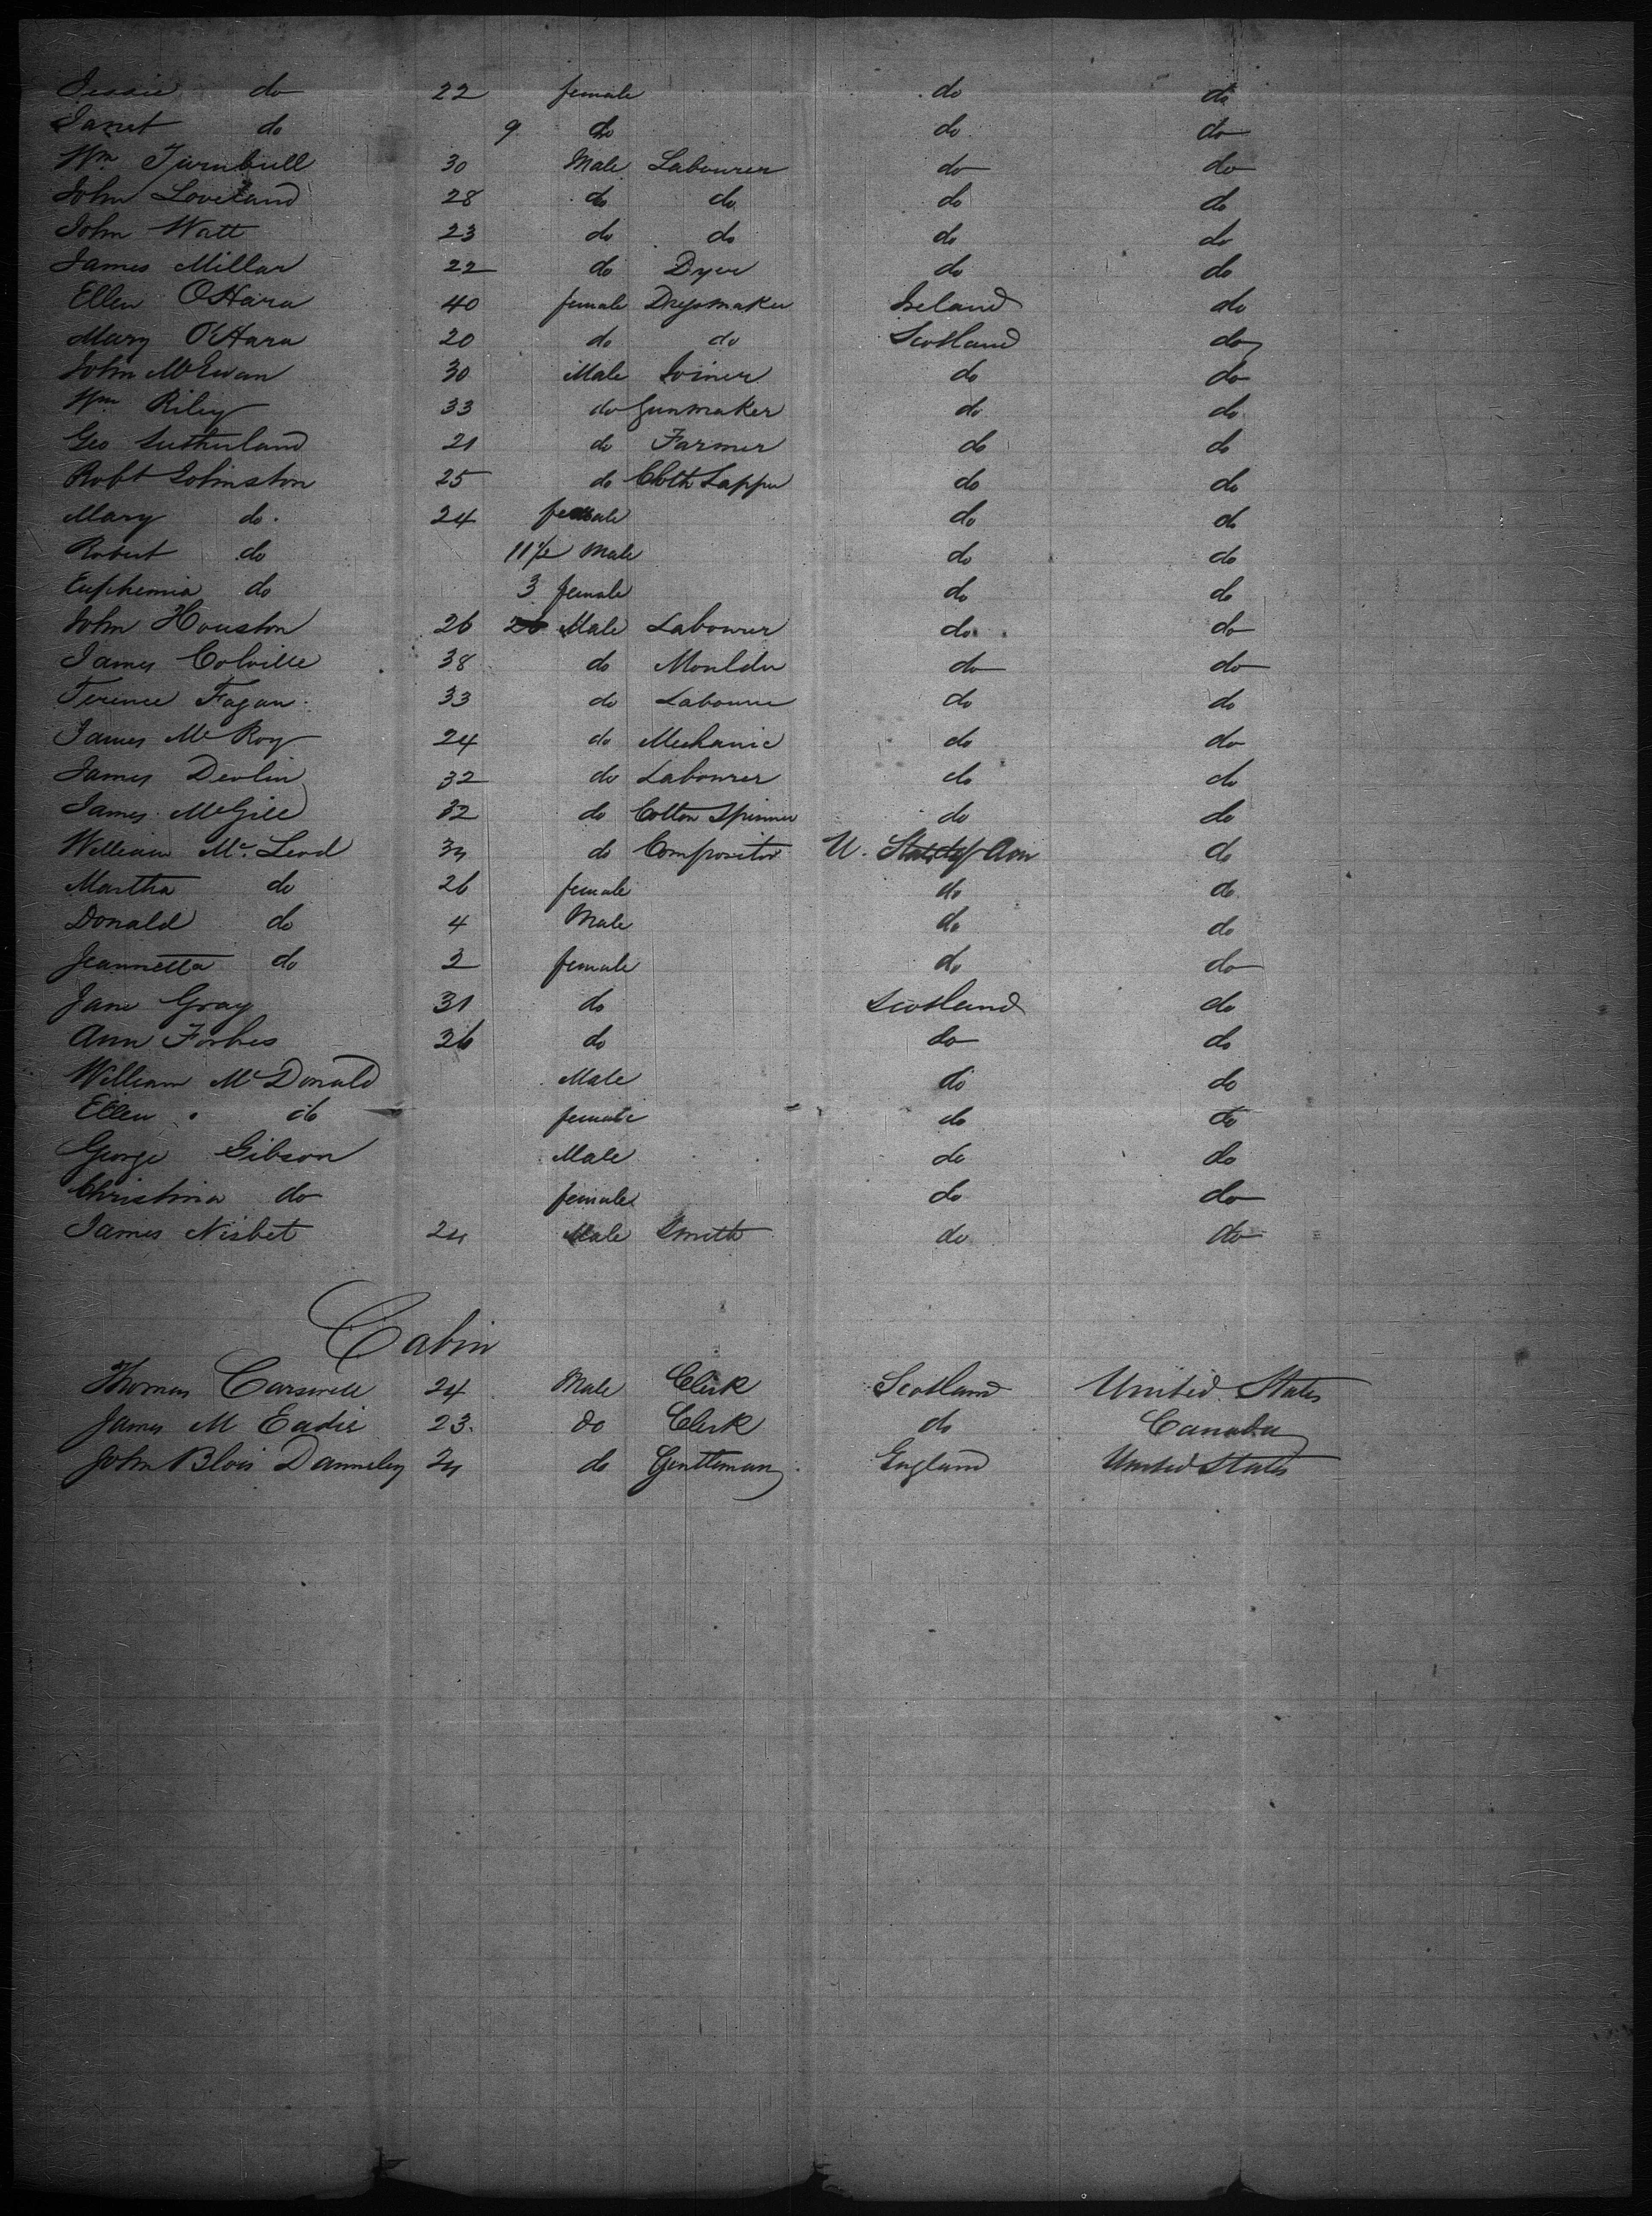 Jessie do 22 female do do
Janet do 9 do do do
Wm Turnbull 30 Male Labourer do do
John Loveland 28 do do do do
John Watt 23 do do do do
James Millar 22 do Dyer do do
Ellen O'Hara 40 female Dressmaker Ireland do
Mary O'Hara 20 do do Scotland do
John McEwan 30 Male Joiner do do
Wm Riley 33 do Gunmaker do do
Geo Sutherland 21 do Farmer do do
Robt Johnston 25 do Cloth Lapper do do
Mary do 24 female do do
Robert do 11½ Male do do
Euphemia do 3 female do do
John Houston 26 Male Labourer do do
James Colville 38 do Moulder do do
Terence Fagan 33 do Labourer do do
James McRoy 24 do Mechanic do do
James Devlin 32 do Labourer do do
James McGill 32 do Cotton Spinner do do
William McLeod do Compositor U. States of Am do
Martha do 26 female do do
Donald do 4 Male do do
Jeannetta do 2 female do do
Jane Gray 31 do Scotland do
Ann Forbes 26 do do do
William McDonald Male do do
Ellen do female do do
George Gibson Male do do
Christina do female do do
James Nisbet 24 Male Smith do do
Cabin
Thomas Carswell 24 Male Clerk Scotland United States
James M Eadie 23 do Clerk do Canada
John Blois Danneley do Gentleman England United States